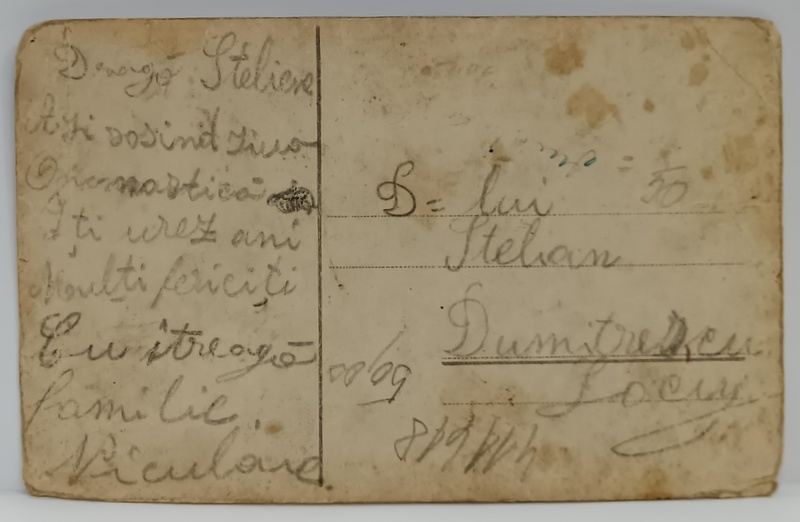 Dragă Stelică
Azi sosind ziua
Onomastică
Îți urez ani
Mulți fericiți
Cu itreagă
familie.
Niculaie
D= lui
50
Stelian
Dumitrescu
Loco